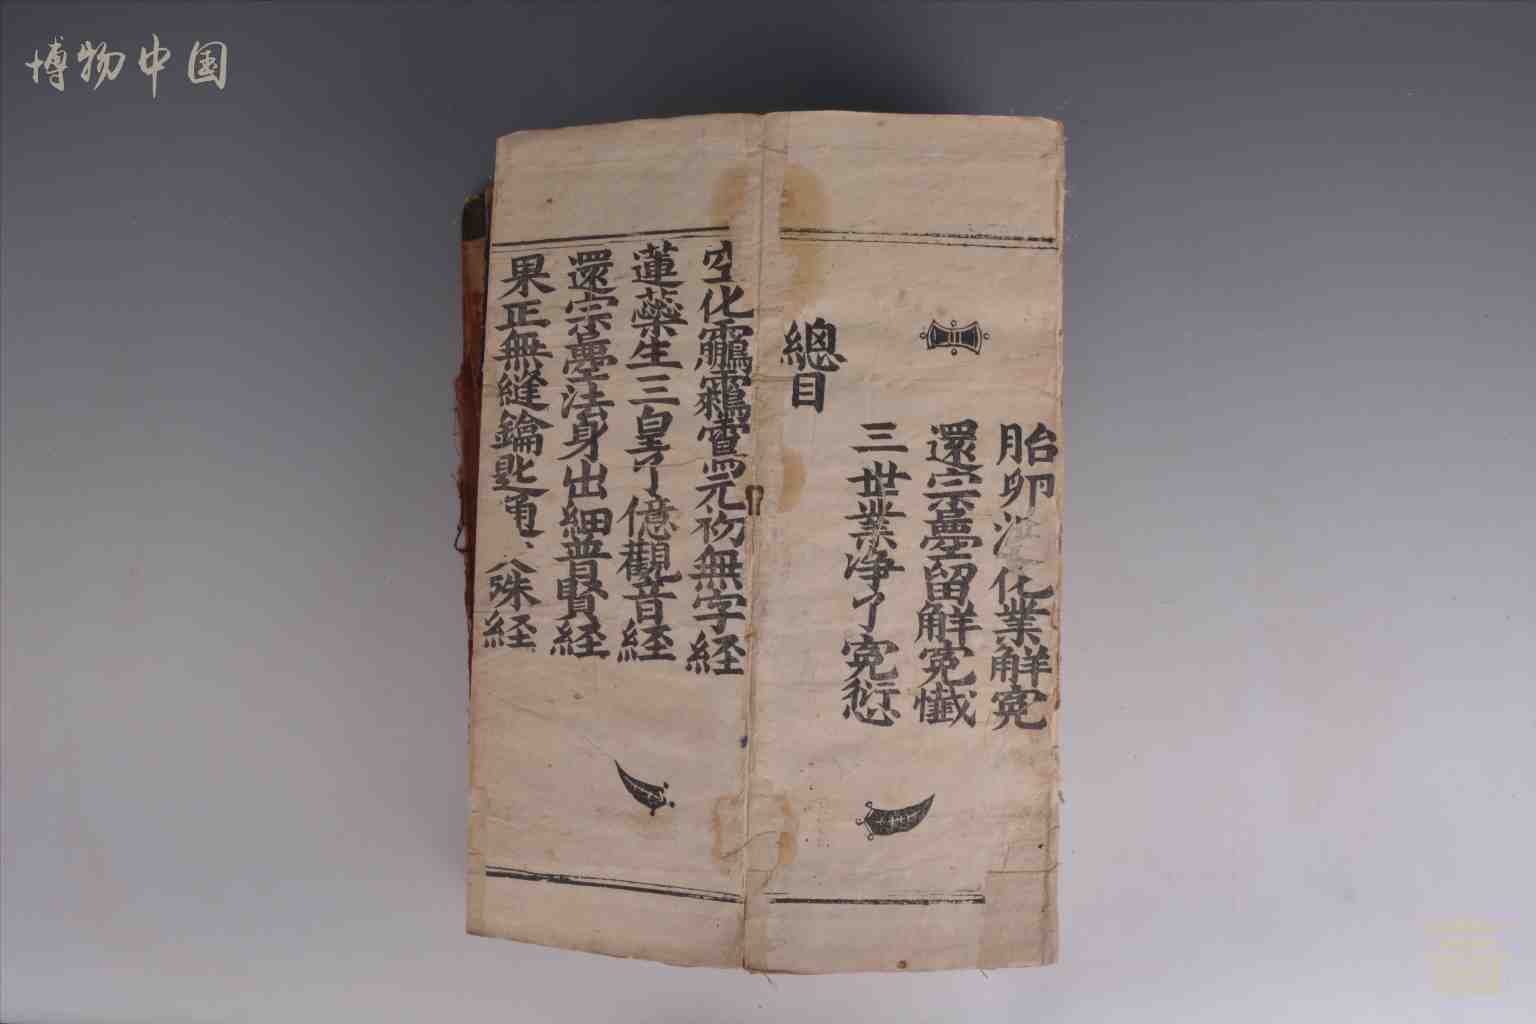 博物中国
胎卵濕化業解寃
還宗臺留解寃懺
三世業净了寃愆
總目
空化元初無字経
蓮蘂生三皇了億觀音経
還宗臺法身出細普賢経
果正無縫鑰匙殊経